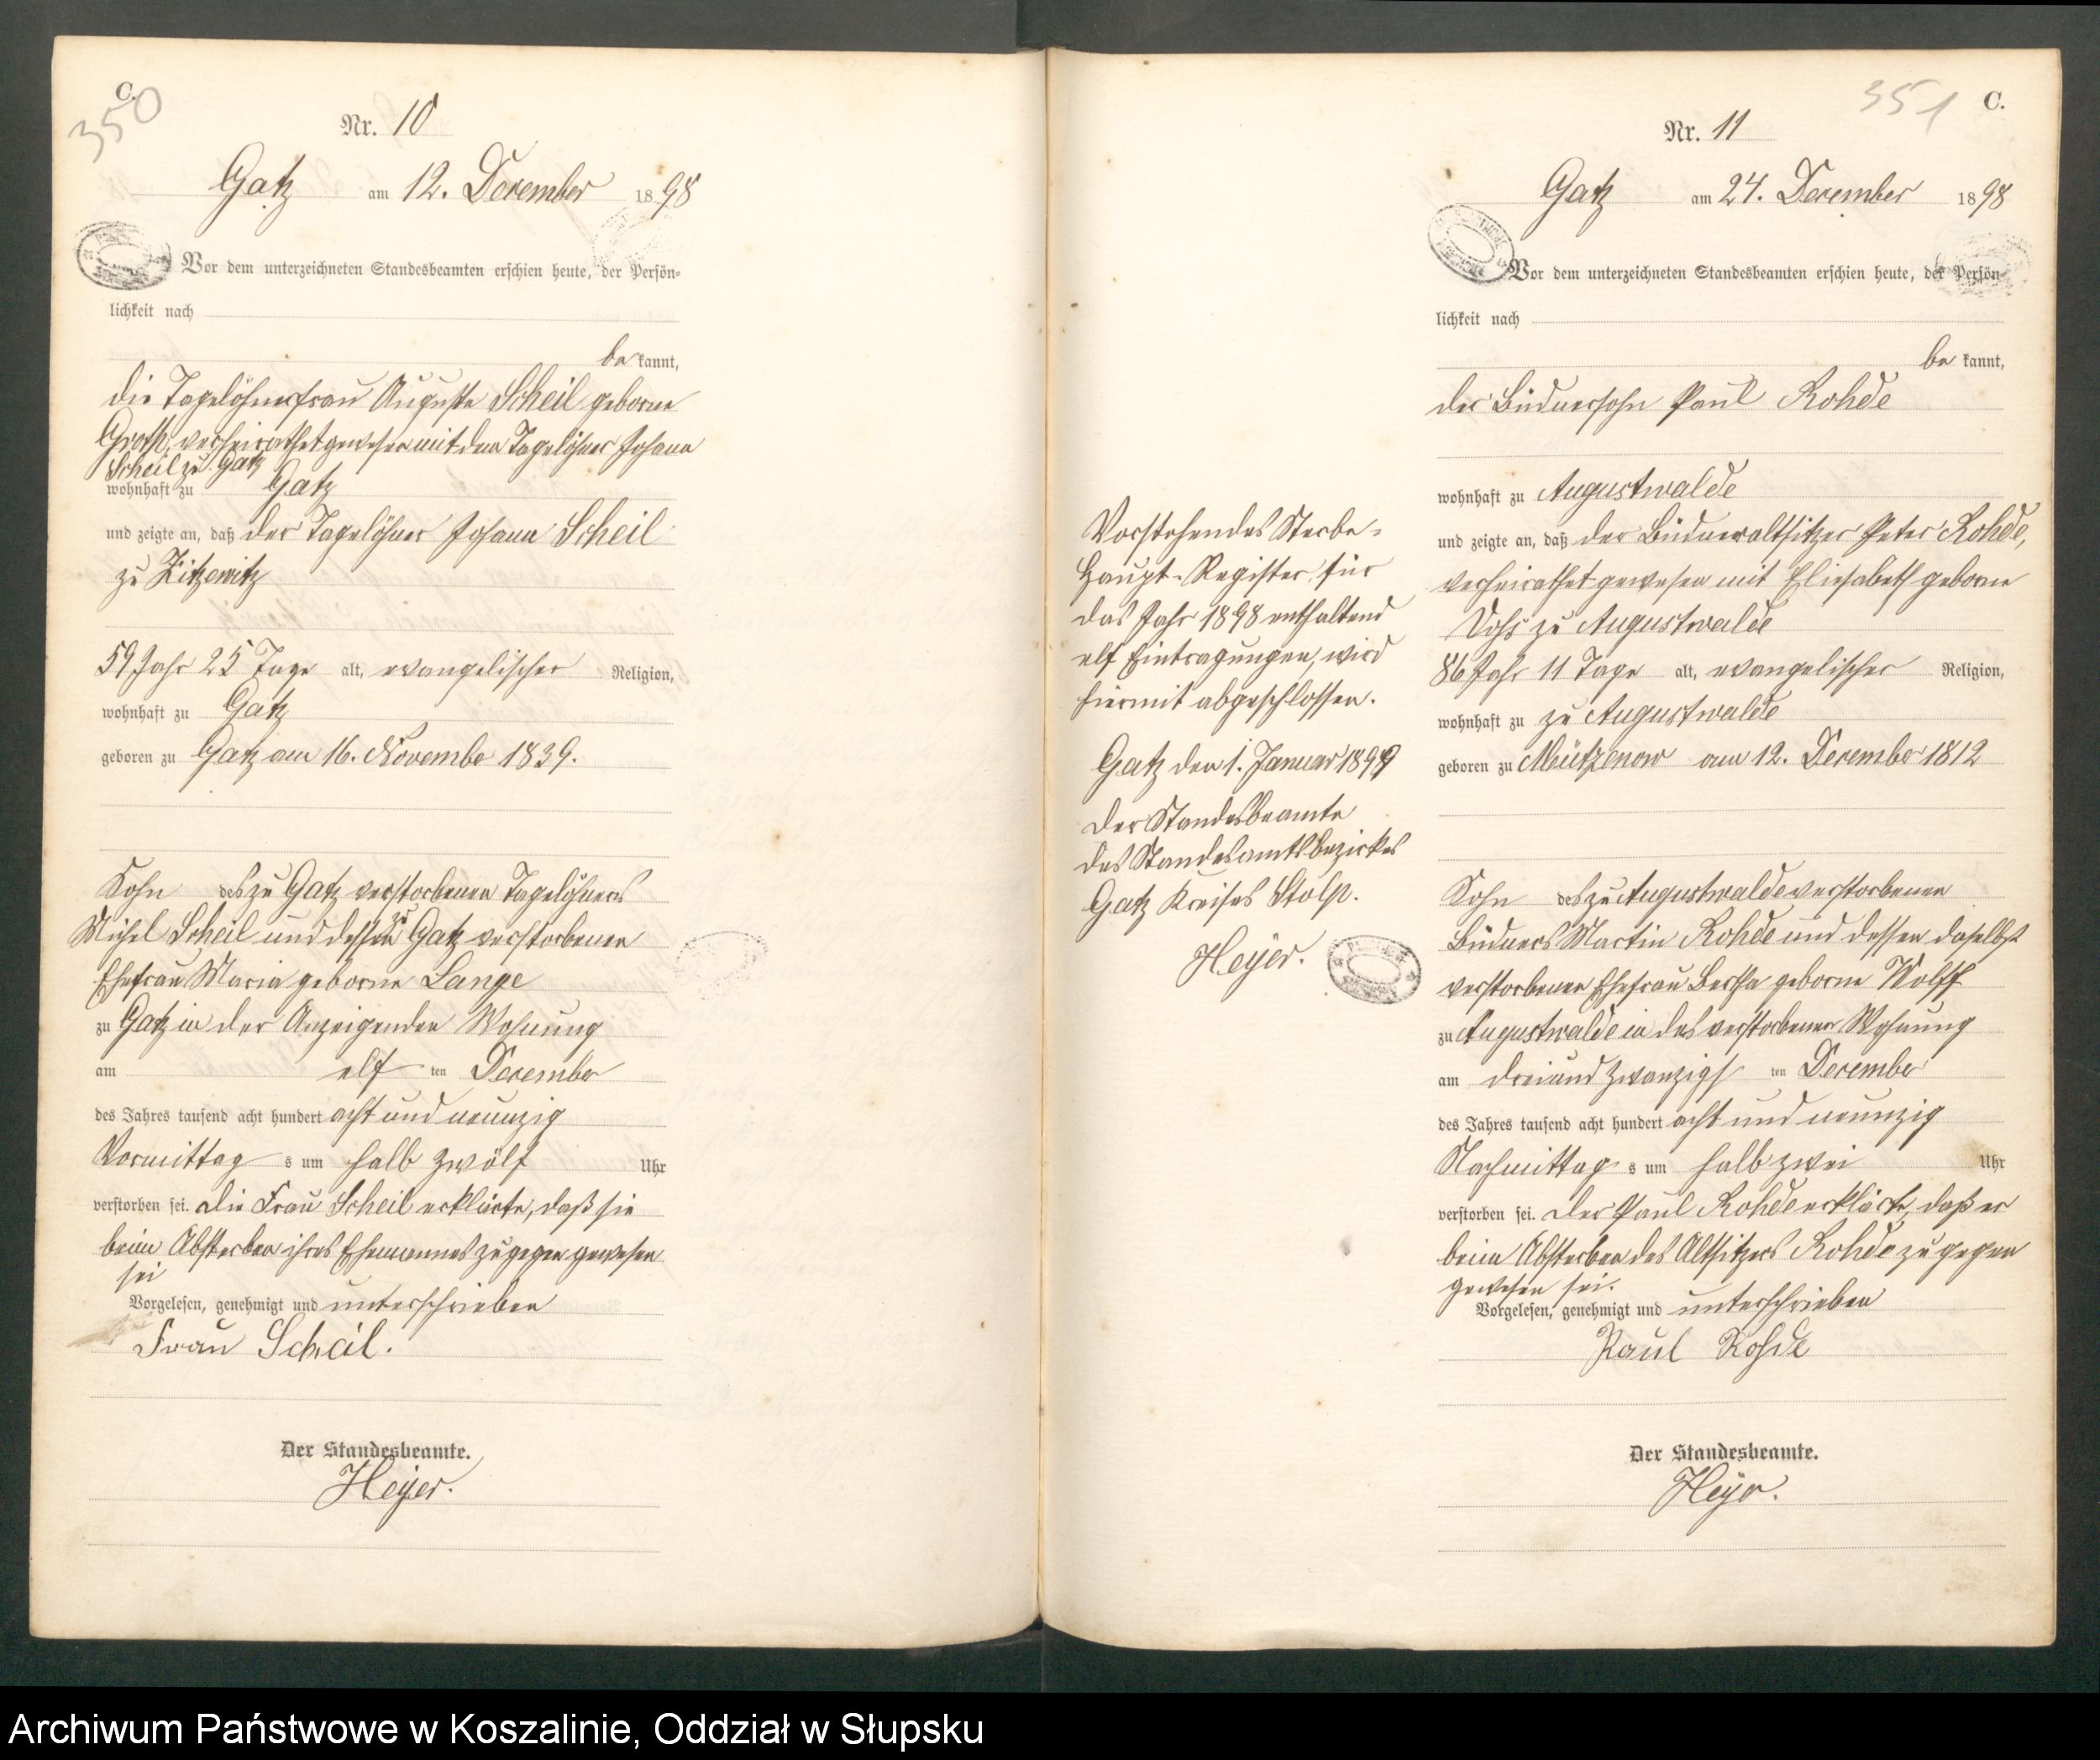 C.
350
Nr. 10
Gatz am 12. December 1898
Vor dem unterzeichneten Standesbeamten erschien heute, der Persön-
lichkeit nach
bekannt,
die Tagelöhnerfrau Auguste Scheil geborne
Groth, verheirathet gewesen mit dem Tagelöhner Johann
Scheil zu Gatz
wohnhaft zu Gatz
und zeigte an, daß der Tagelöhner Johann Scheil
zu Zitzewitz
59 Jahr 25 Tage alt, evangelischer Religion,
wohnhaft zu Gatz
geboren zu Gatz am 16. Novembe 1839.
Sohn des zu Gatz verstorbenen Tagelöhners
Michel Scheil und dessen zu Gatz verstorbenen
Ehefrau Maria geborne Lange
zu Gatz in der Anzeigenden Wohnung
am elf ten December
des Jahres tausend acht hundert acht und neunzig
Vormittag s um halb zwölf Uhr
verstorben sei. Die Frau Scheil erklärte, daß sie
beim Absterben ihres Ehemannes zugegen gewesen
sei
Vorgelesen, genehmigt und unterschrieben
Frau Scheil.
Der Standesbeamte.
Heyer.
Vorstehendes Sterbe-
Haupt-Register für
das Jahr 1898 enthaltend
elf Eintragungen, wird
hiermit abgeschlossen.
Gatz den 1. Januar 1899
Der Standesbeamte
des Standesamtsbezirkes
Gatz Kreises Stolp.
Heyer.
351 C.
Nr. 11
Gatz am 24. December 1898
Vor dem unterzeichneten Standesbeamten erschien heute, der Persön-
lichkeit nach
bekannt,
der Büdnersohn Paul Rohde
wohnhaft zu Augustwalde
und zeigte an, daß der Büdneraltsitzer Peter Rohde,
verheirathet gewesen mit Eliesabeth geborne
Voss zu Augustwalde
86 Jahr 11 Tage alt, evangelischer Religion,
wohnhaft zu zu Augustwalde
geboren zu Mützenow am 12. December 1812
Sohn des zu Augustwalde verstorbenen
Büdners Martin Rohde und dessen daselbst
verstorbenen Ehefrau Bertha geborne Wolff
zu Augustwalde in des verstorbenen Wohnung
am dreiundzwanzigs ten December
des Jahres tausend acht hundert acht und neunzig
Nachmittag s um halb zwei Uhr
verstorben sei. Der Paul Rohde erklärte, daß er
beim Absterben des Altsitzers Rohde zugegen
gewesen sei.
Vorgelesen, genehmigt und unterschrieben
Paul Rohde
Der Standesbeamte.
Heyer.
Archiwum Państwowe w Koszalinie, Oddział w Słupsku